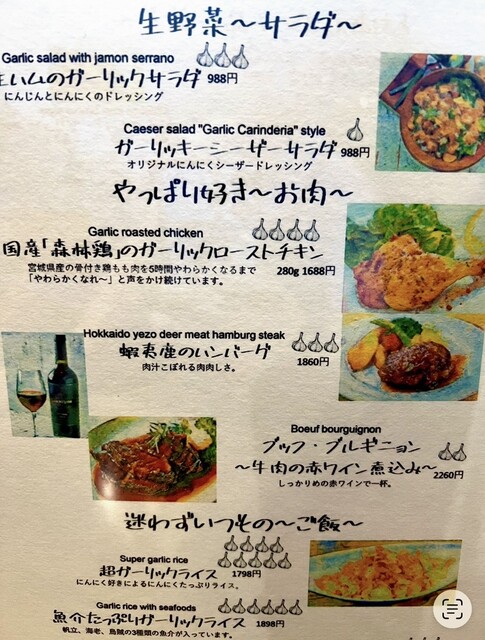 生野菜〜サラダ〜
Garlic salad with jamon serrano
生ハムのガーリックサラダ 988円
にんじんとにんにくのドレッシング
Caeser salad "Garlic Carinderia" style
ガーリッキーシーザーサラダ 988円
オリジナルにんにくシーザードレッシング
やっぱり好き〜お肉〜
Garlic roasted chicken
国産「森林鶏」のガーリックローストチキン
宮城県産の骨付き鶏もも肉を5時間やわらかくなるまで 280g 1688円
「やわらかくなれ〜」と声をかけ続けています。
Hokkaido yezo deer meat hamburg steak
蝦夷鹿のハンバーグ 1860円
肉汁こぼれる肉肉しさ。
Boeuf bourguignon
ブッフ・ブルギニョン
〜牛肉の赤ワイン煮込み〜 2260円
しっかりめの赤ワインで一杯。
迷わずいつもの〜ご飯〜
Super garlic rice
超ガーリックライス 1798円
にんにく好きによるにんにくたっぷりライス。
Garlic rice with seafoods
魚介たっぷりガーリックライス 1898円
帆立、海老、烏賊の3種類の魚介が入っています。